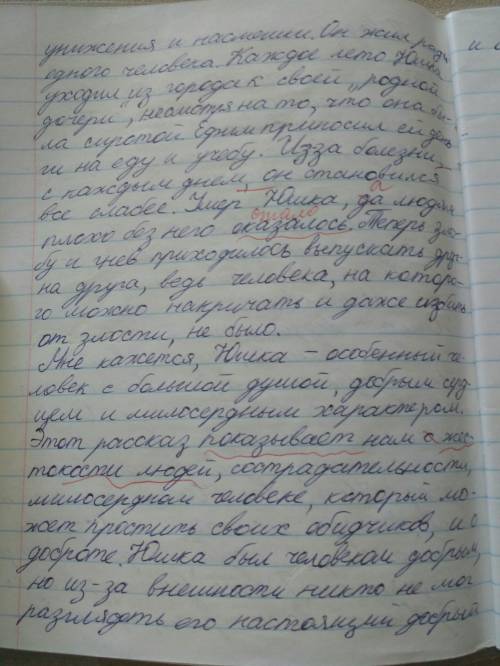 унижения и насмешки. Он жил ради
одного человека. Каждое лето Юшка
уходил из города к своей „родной
дочери", несмотря на то, что она бы-
ла сиротой Ефим приносил ей день-
ги на еду и учебу. Изза болезни
с каждым днем, он становился
все слабее. Умер Юшка, да людям
стало
плохо без него оказалось. Теперь зло-
бу и гнев приходилось выпускать друг
на друга, ведь человека, на которо-
го можно накричать и даже избить
от злости, не было.
Мне кажется, Юшка – особенный че-
ловек с большой душой, добрым серд-
цем и милосердным характером.
Этот рассказ показывает нам о жес-
токости людей, сострадательности,
милосердном человеке, который мо-
жет простить своих обидчиков, и о
доброте. Юшка был человеком добрым,
но из-за внешности никто не мог
разглядеть его настоящий добрый
и